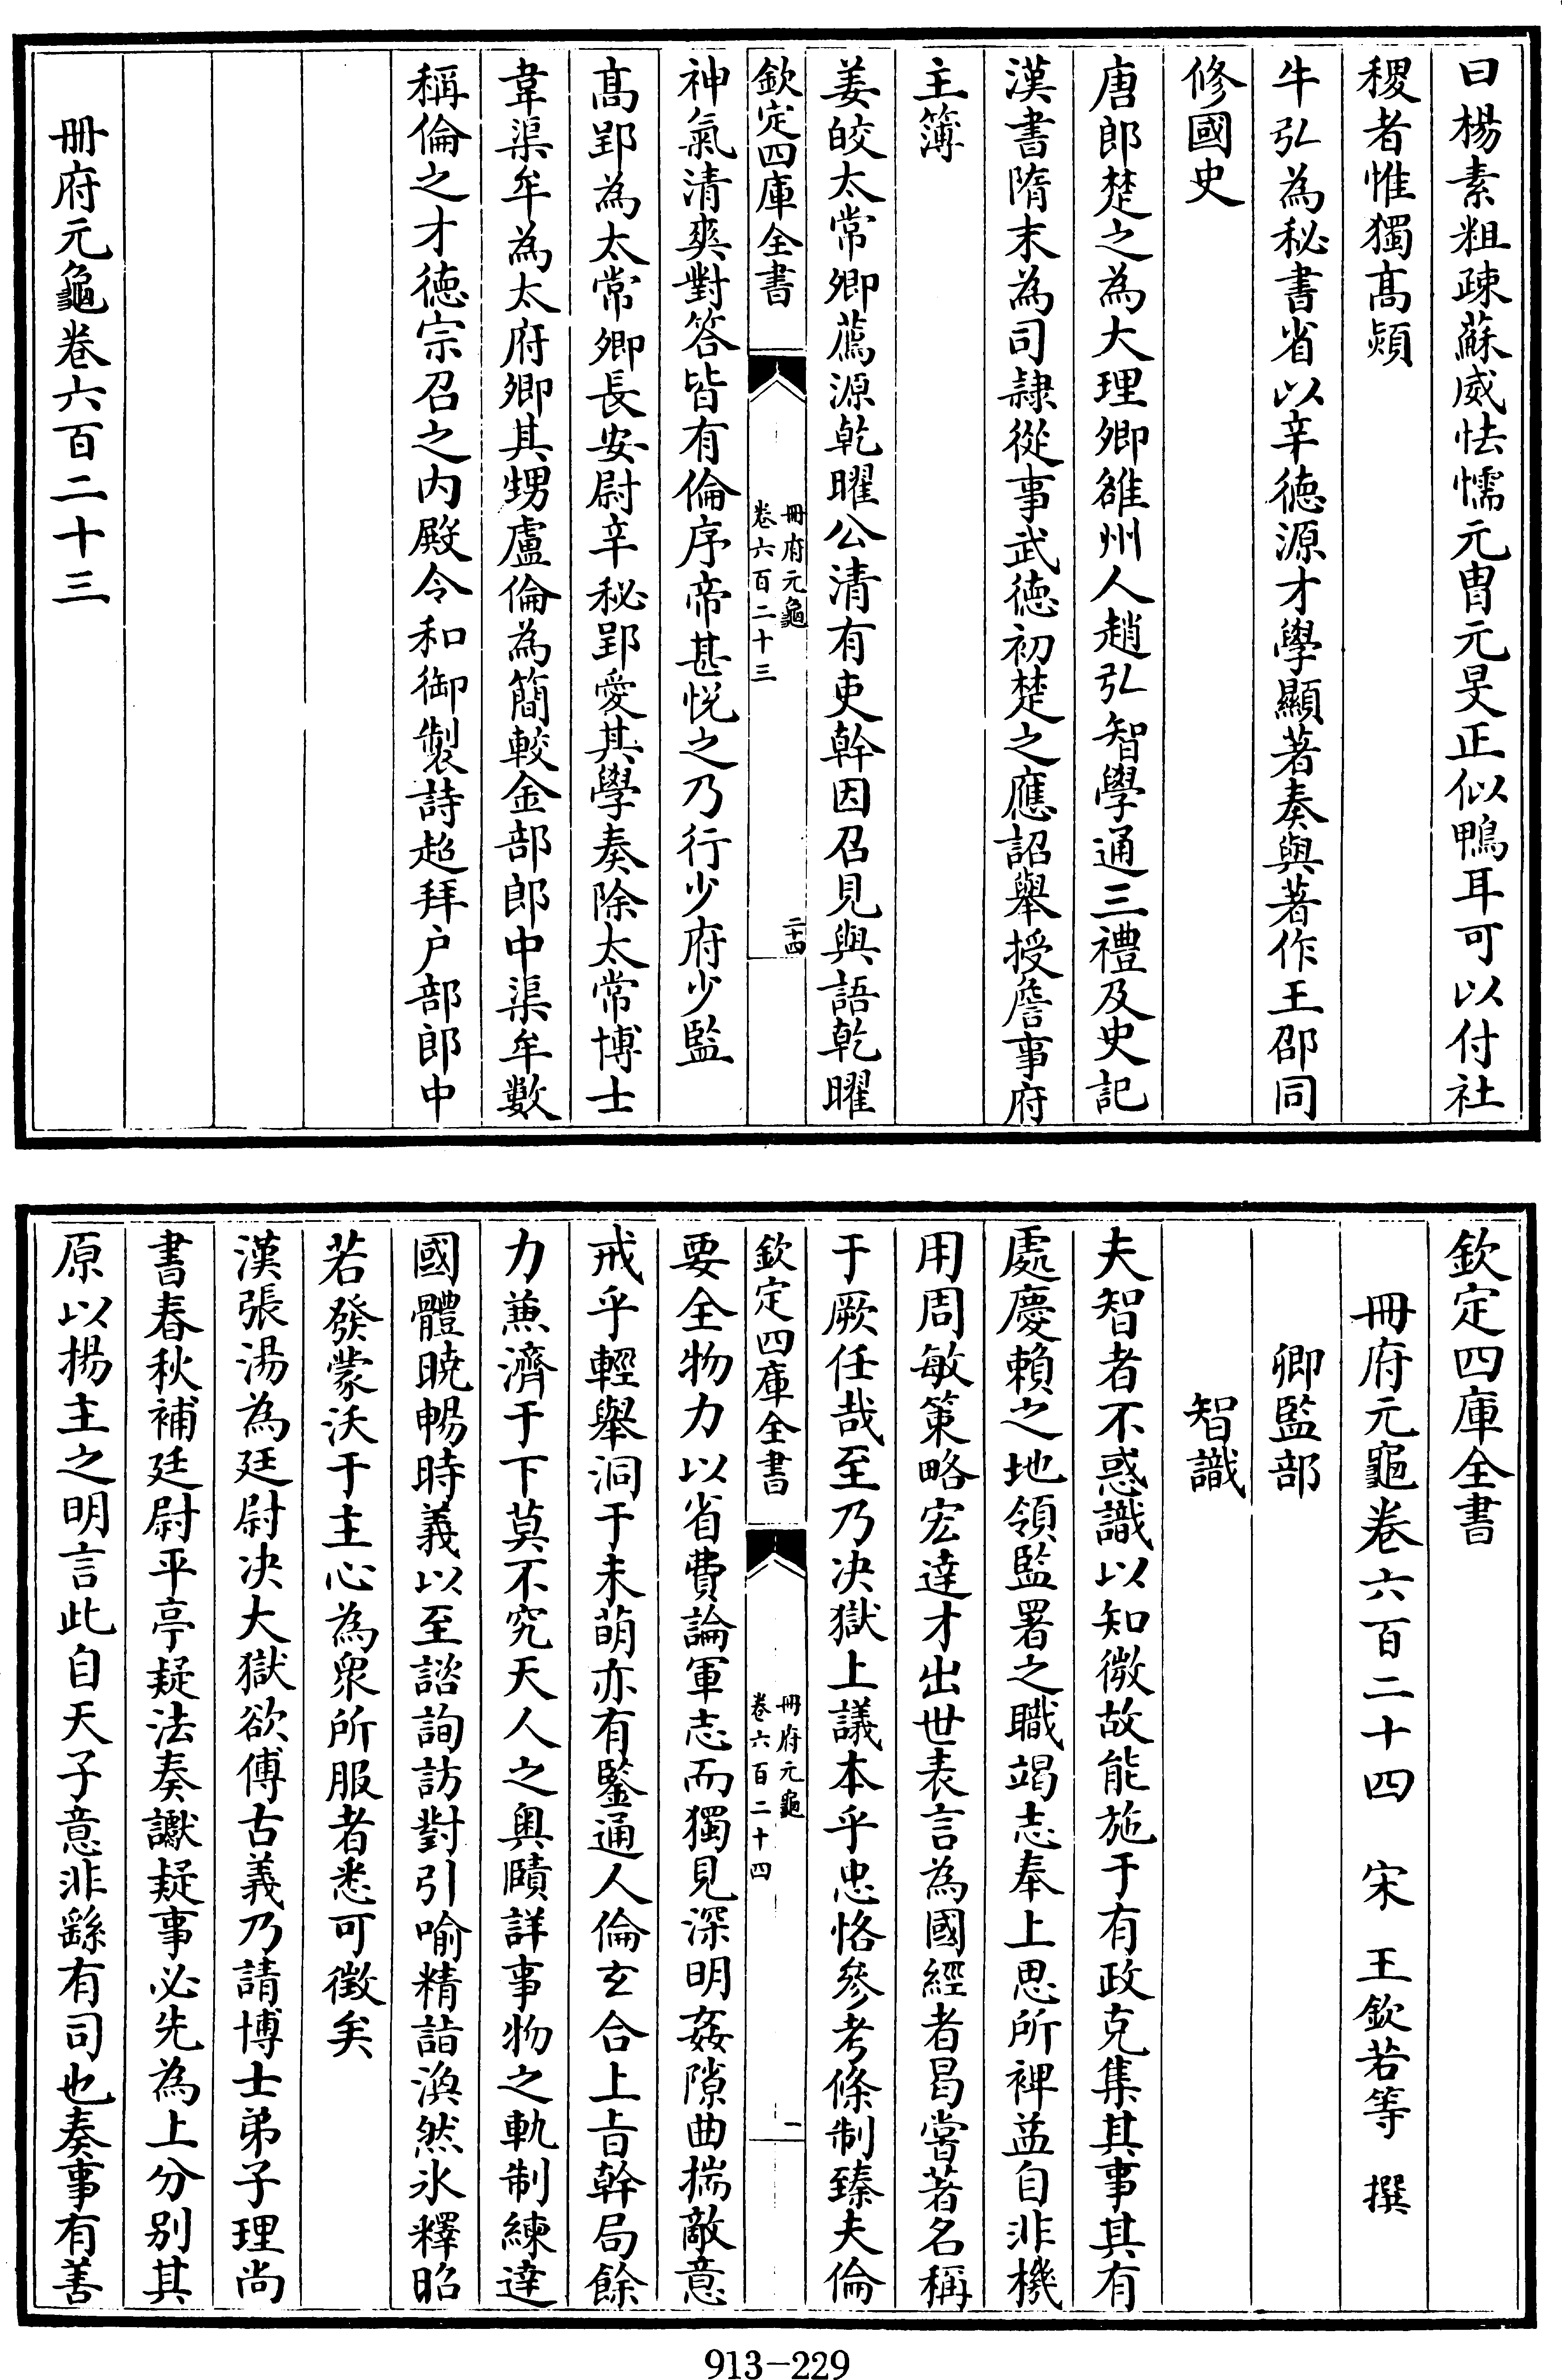 曰楊素粗疎蘇威怯懦元胄元旻正似鴨耳可以付社
稷者惟獨髙熲
牛弘為秘書省以辛德源才學顯著奏與著作王邵同
修國史
唐郎楚之為大理卿雒州人趙弘智學通三禮及史記
漢書隋末為司隷從事武徳初楚之應詔舉授詹事府
主簿
姜皎太常卿薦源乾曜公清有吏幹因召見與語乾曜
欽定四庫全書
冊府元龜
卷六百二十三
二十四
神氣清爽對答皆有倫序帝甚悦之乃行少府少監
髙郢為太常卿長安尉辛秘郢愛其學奏除太常博士
韋渠牟為太府卿其甥盧倫為簡較金部郎中渠牟數
稱倫之才徳宗召之内殿令和御製詩超拜户部郎中
冊府元龜卷六百二十三
欽定四庫全書
冊府元龜卷六百二十四 宋 王欽若等 撰
卿監部
智識
夫智者不惑識以知微故能施于有政克集其事其有
處慶賴之地領監署之職竭志奉上思所裨益自非機
用周敏策略宏達才出世表言為國經者曷嘗著名稱
于厥任哉至乃决獄上議本乎忠恪參考條制臻夫倫
欽定四庫全書
冊府元龜
卷六百二十四
一
要全物力以省費論軍志而獨見深明姦隙曲揣敵意
戒乎輕舉洞于未萌亦有鑒通人倫玄合上㫖幹局餘
力兼濟于下莫不究天人之奥賾詳事物之軌制練達
國體曉暢時義以至諮詢訪對引喻精詣渙然氷釋昭
若發蒙沃于主心為衆所服者悉可徵矣
漢張湯為廷尉决大獄欲傅古義乃請博士弟子理尚
書春秋補廷尉平亭疑法奏讞疑事必先為上分别其
原以揚主之明言此自天子意非繇有司也奏事有善
913-229